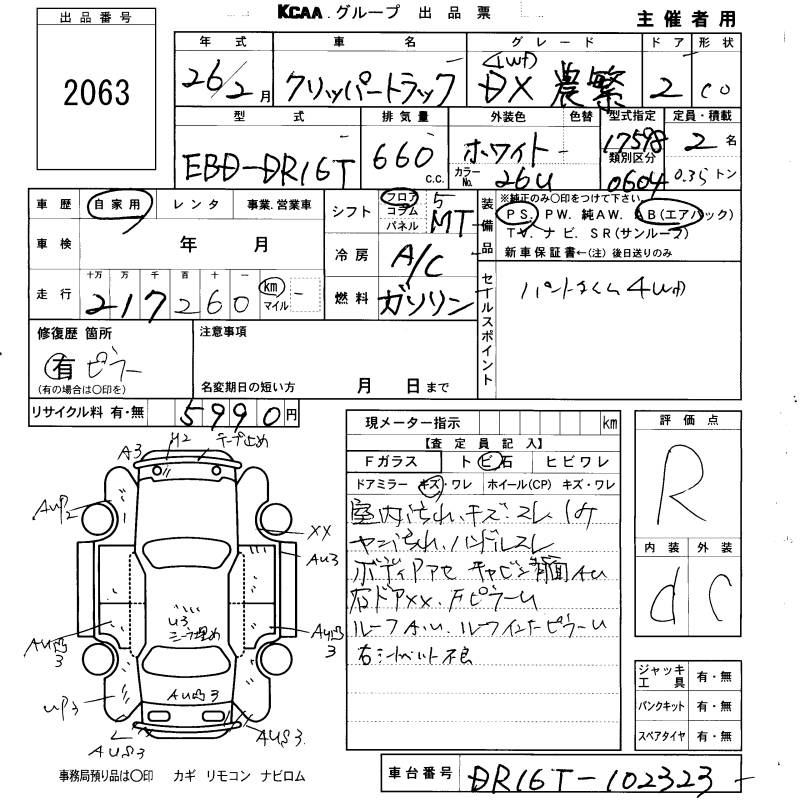 KCAA.グループ 出品票
主催者用
出品番号
2063
年式 車名 グレード ドア 形状
26/2月 クリッパートラック (4WD) DX 農繁 2 CO
型式 排気量 外装色 色替 型式指定 定員・積載
EBD-DR16T 660 c.c. ホワイト 17598 2名
カラーNo. 26U 類別区分 0604 0.35トン
車歴 自家用 レンタ 事業.営業車
シフト フロア コラム パネル 5 MT
装備品
※純正のみ〇印をつけて下さい
PS. PW. 純AW. AB(エアバック)
TV. ナビ. SR(サンルーフ)
新車保証書←(注)後日送りのみ
車検 年 月
冷房 A/C
走行 十万 万 千 百 十 一
217260 km マイル
燃料 ガソリン
セールスポイント
4WD
修復歴 箇所
有 ピラー
(有の場合は〇印を)
注意事項
名変期日の短い方 月 日まで
リサイクル料 有・無 5990円
現メーター指示 km
【査定員記入】
Fガラス トビ石 ヒビワレ
ドアミラー キズ・ワレ ホイール(CP) キズ・ワレ
室内 キズ.スレ
ハンドルスレ
ボディ キャビン背面AU
右ドアXX.
ルーフAU.
右シートベルト不良
評価点
R
内装 外装
d C
A3
U2
テープ止め
AU凹2
XX
AU3
U3
AU凹3
AU凹3
UP3
AU凹3
XX
AUS3
AUS3.
ジャッキ工具 有・無
パンクキット 有・無
スペアタイヤ 有・無
事務局預り品は〇印 カギ リモコン ナビロム
車台番号 DR16T-102323